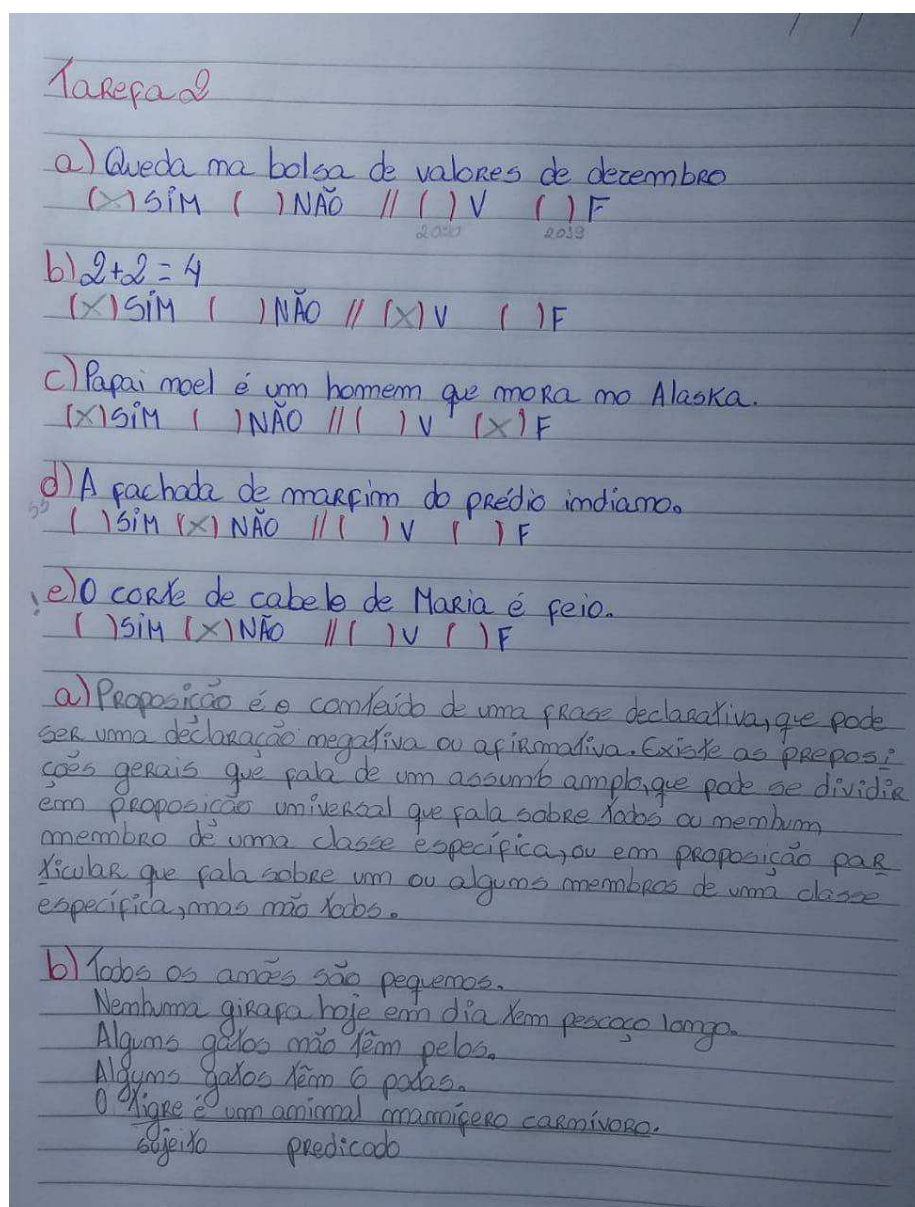 Tarefa 2
a) Queda na bolsa de valores de dezembro
(X) SIM ( ) NÃO // ( ) V ( ) F
2020 2019
b) 2+2=4
(X) SIM ( ) NÃO // (X) V ( ) F
c) Papai noel é um homem que mora no Alaska.
(X) SIM ( ) NÃO // ( ) V (X) F
d) A fachada de marfim do prédio indiano.
( ) SIM (X) NÃO // ( ) V ( ) F
e) O corte de cabelo de Maria é feio.
( ) SIM (X) NÃO // ( ) V ( ) F
a) Proposição é o conteúdo de uma frase declarativa, que pode
ser uma declaração negativa ou afirmativa. Existe as preposi
ções gerais que fala de um assunto amplo, que pode se dividir
em proposição universal que fala sobre todos ou nenhum
membro de uma classe específica, ou em proposição par
ticular que fala sobre um ou alguns membros de uma classe
específica, mas não todos.
b) Todos os anões são pequenos.
Nenhuma girafa hoje em dia tem pescoço longo.
Alguns gatos não têm pelos.
Alguns gatos têm 6 patas.
O tigre é um animal mamífero carnívoro.
sujeito predicado